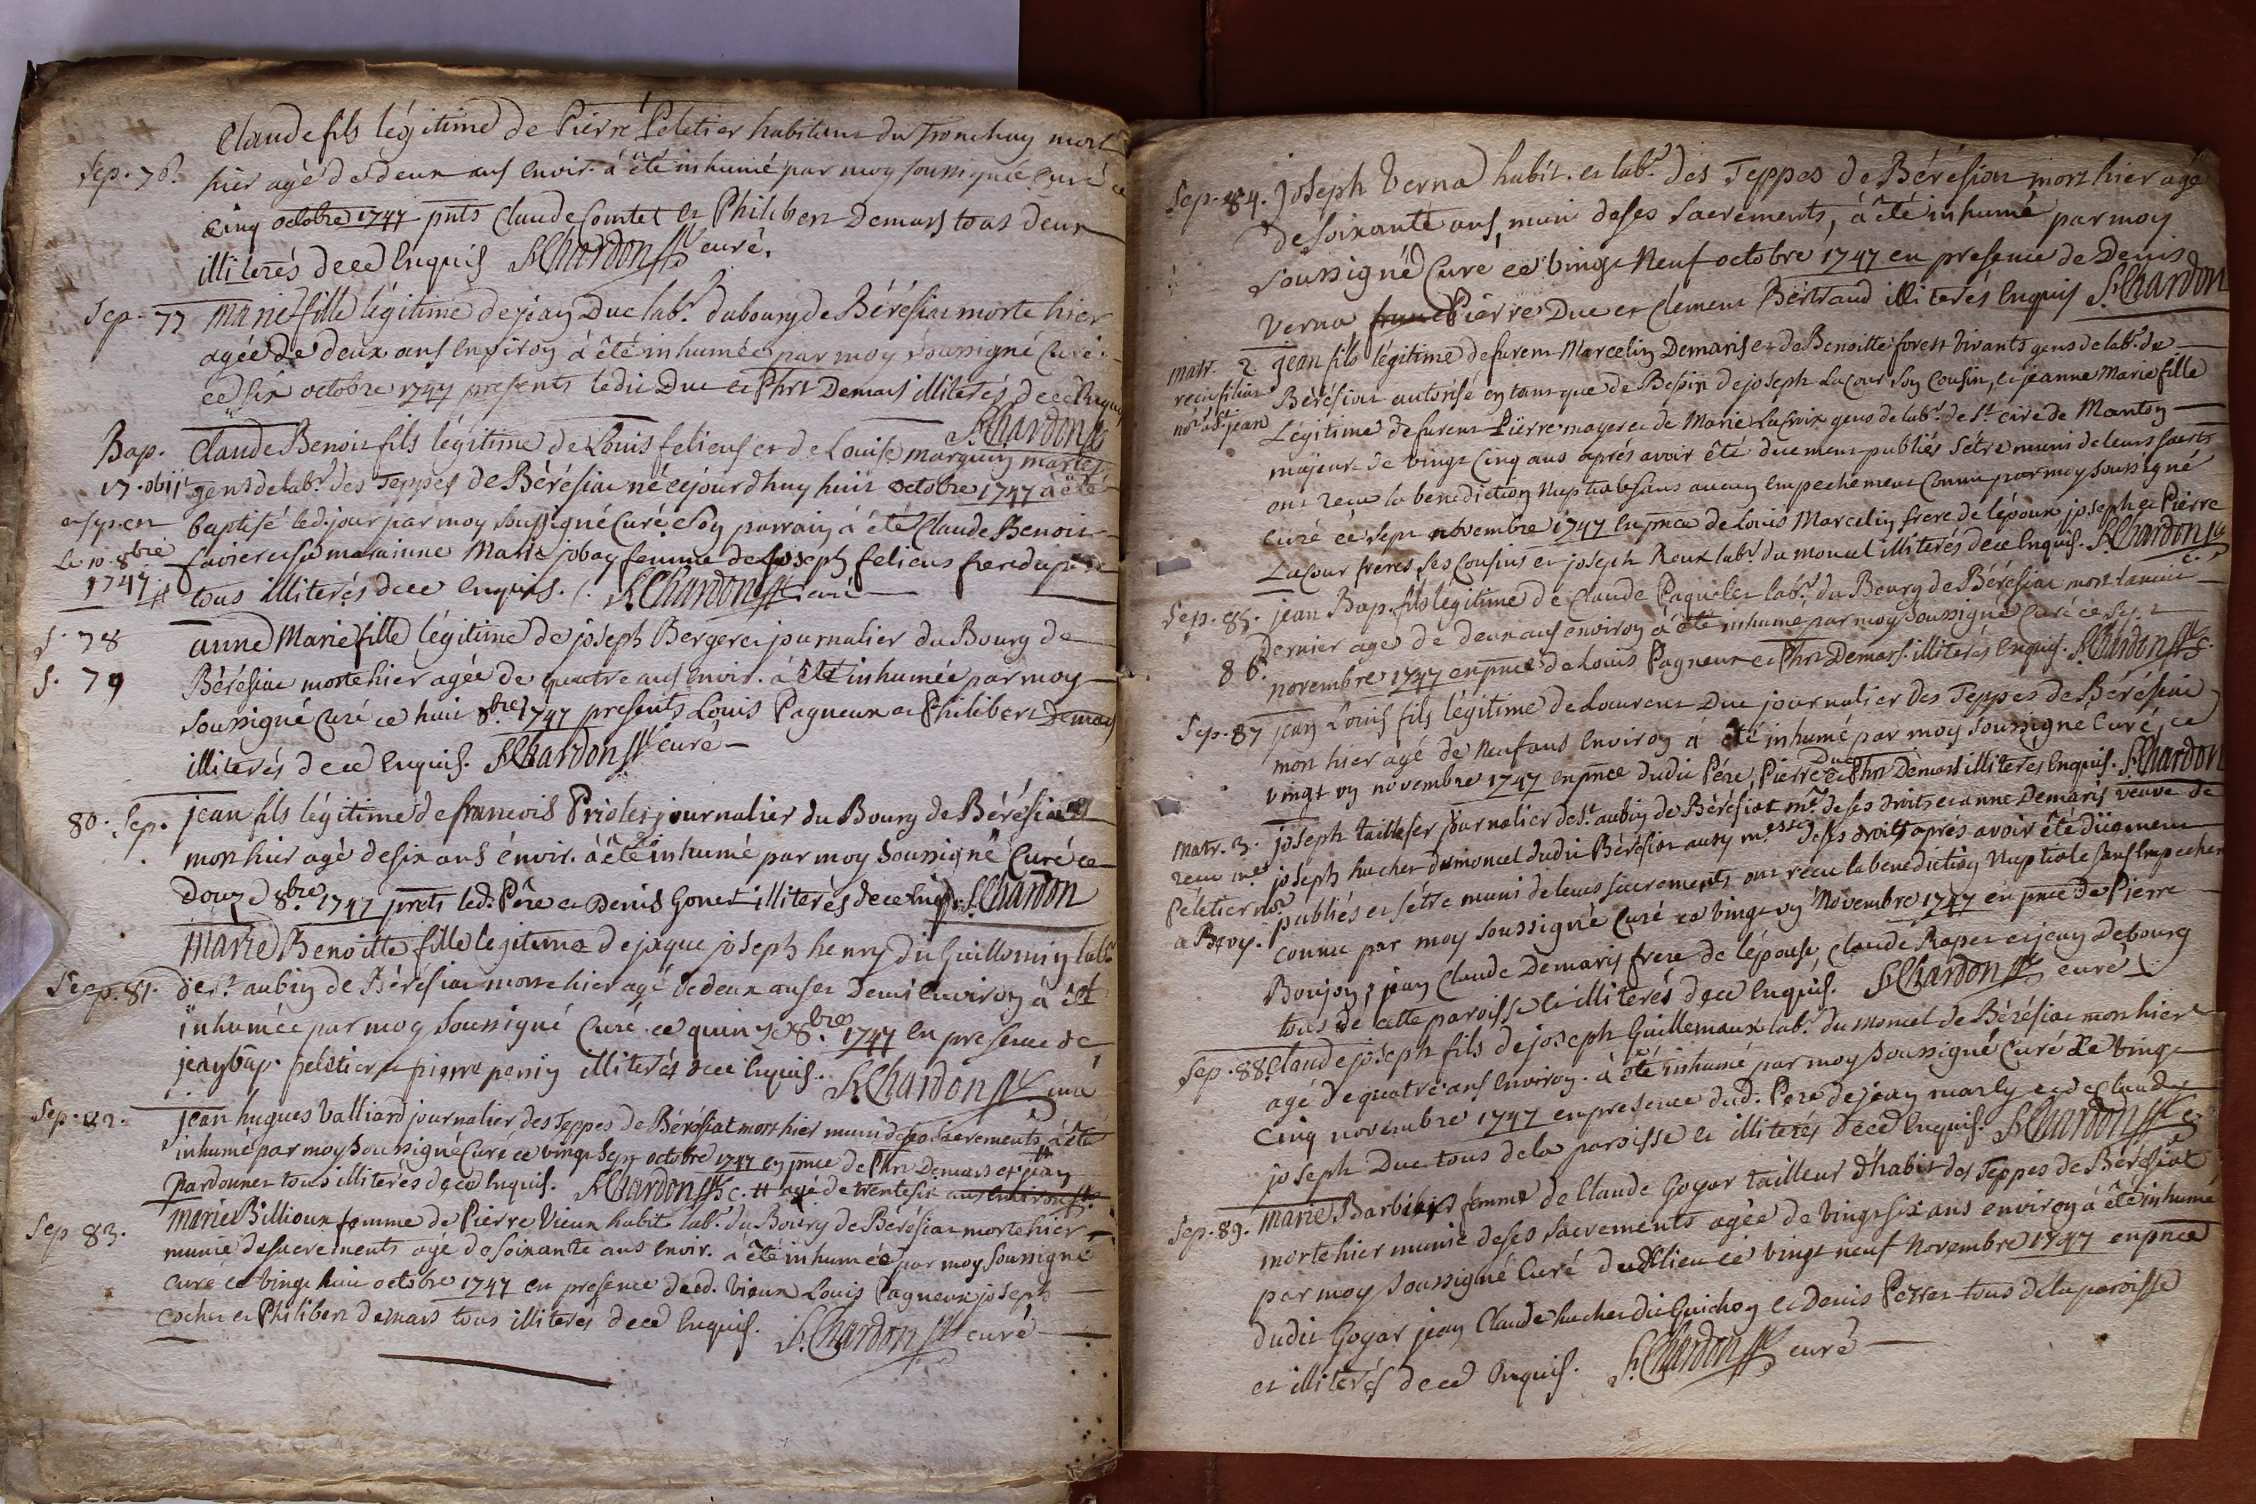 Claude fils légitime de Pierre Peletier habitant du Tronchay mort
Sep. 76. hier agé de deux ans envir. à été inhumé par moy soussigné curé ce
cinq octobre 1747 pnts Claude Comtet et Philibert Demars tous deux
illiterés de ce enquis S. Chardon curé.
Sep. 77 Marie fille légitime de jean Duc labr. du bourg de Bérésiat morte hier
agée de deux ans environ à été inhumée par moy soussigné Curé
ce six octobre 1747 presents ledit Duc et Phrt Demars illiterés de ce enquis
S. Chardon
Bap. Claude Benoit fils légitime de Louis feliens et de Louise marguin
17. obiit gens de labr. des Teppes de Bérésiat né cejourdhuy huit octobre 1747 à été
baptisé led. jour par moy soussigné Curé et son parrain à été Claude Benoit
Le 10. 8bre et sa marainne Marie jobay femme de joseph feliens frere du
1747 tous illiterés de ce enquis. S. Chardon curé
S. 78 anne Marie fille légitime de joseph Bergeret journalier du Bourg de
S. 79 Bérésiat morte hier agée de quatre ans envir. à été inhumée par moy
soussigné Curé ce huit 8bre 1747 presents Louis Pagneux et Philibert Demars
illiterés de ce enquis. S. Chardon curé
80. Sep. jean fils légitime de francois Priolet journalier du Bourg de Bérésiat
mort hier agé de six ans envir. à été inhumé par moy soussigné Curé ce
douz 8bre 1747 pnts led. Pére et Denis Gonet illiterés de ce enq. S. Chardon
Marie Benoitte fille legitime de jaque joseph henry dit Guillomin labr
Sep. 81. de St. aubin de Bérésiat morte hier agé de deux ans et Demi environ à été
inhumée par moy soussigné Curé ce quinze 8bre 1747 en presence de
jean bap. peletier et pierre perrin illiterés de ce enquis. S. Chardon curé
Sep. 82. jean hugues Valliard journalier des Teppes de Bérésiat mort hier muni de ses sacrements, à été
inhumé par moy soussigné Curé ce vingt sept octobre 1747 en pnce de Phrt Demars et jean
Pardonnet tous illiterés de ce enquis. S. Chardon c. # agé de trente six ans environ
Sep 83. Marie Billioux femme de Pierre Vieux habit. labr. du Bourg de Bérésiat morte hier
munie de sacrements agé de soixante ans envir. à été inhumée par moy soussigné
Curé ce vingt huit octobre 1747 en presence dud. Vieux Louis Pagneux joseph
Cochet et Philibert demars tous illiterés de ce enquis. S. Chardon curé
Sep. 84. Joseph Verna habit. et labr. des Teppes de Bérésiat mort hier agé
de soixante ans, muni de ses sacrements, à été inhumé par moy
soussigné Curé ce vingt Neuf octobre 1747 en presence de Denis
Verna Pierre Duc et Clement Bertrand illiterés enquis S. Chardon
Matr. 2 jean fils légitime de furent Marcelin Demaris et de Benoitte forest vivants gens de labr. de
Bérésiat autorisé en tant que de Besoin de joseph Lacour son Cousin, et jeanne Marie fille
Légitime de furent Pierre mayeret de Marie Lacroix gens de labr. de St. cire de Manton
majeure de vingt cinq ans aprés avoir été duement publiés s'étre muni de leurs sacrts
ont recu la benediction Nuptiale sans aucun empechement Connu par moy soussigné
Curé ce sept novembre 1747 en pnce de Louis Marcelin frere de l'époux joseph et Pierre
Lacour freres ses Cousins et joseph Roux labr. du moncel illiterés de ce enquis. S. Chardon
c.
Sep. 85. jean Bap. fils légitime de Claude Paquelet labr. du Bourg de Bérésiat mort
86. dernier agé de deux ans environ à été inhumé par moy soussigné Curé ce sept
novembre 1747 en pnce de Louis Pagneux et Phrt Demars. illiterés enquis. S. Chardon c.
Sep. 87 jean Louis fils légitime de Laurent Duc journalier des Teppes de Bérésiat
mort hier agé de neuf ans environ à été inhumé par moy soussigné Curé, ce
vingt un novembre 1747 en pnce dudit Pére, Pierre Duc et Phrt Demars illiterés enquis. S. Chardon
Matr. 3. joseph taillefer journalier de St. aubin de Bérésiat me. de ses droits et anne Demaris veuve de
joseph hucher du moncel dudit Bérésiat aussy messe de ses droits aprés avoir été düement
Péletier publiés et s'étre muni de leurs sacrements ont recu la benediction Nuptiale sans empechem
connu par moy soussigné Curé ce vingt un Novembre 1747 en pnce de Pierre
Boujon, jean Claude Demaris frere de l'épouse, Claude Raper et jean Debourg
tous de cette paroisse et illiterés de ce enquis. S. Chardon curé
Sep. 88. Claude joseph fils de joseph Guillemaux labr. du moncel de Bérésiat mort hier
agé de quatre ans environ. à été inhumé par moy soussigné Curé ce vingt
cinq novembre 1747 en presence dud. Pere de jean marly et de Claude
joseph Duc tous de la paroisse et illiterés de ce enquis. S. Chardon c.
Sep. 89. Marie Barbier femme de Claude Goyar tailleur d'habit des Teppes de Bérésiat
morte hier munie de ses sacrements agée de vingt six ans environ à été inhumé
par moy soussigné Curé dudit lieu ce vingt neuf Novembre 1747 en pnce
dudit Goyar jean Claude hucher dit Guichon et Denis Perret tous de la paroisse
et illiterés de ce enquis. S. Chardon curé